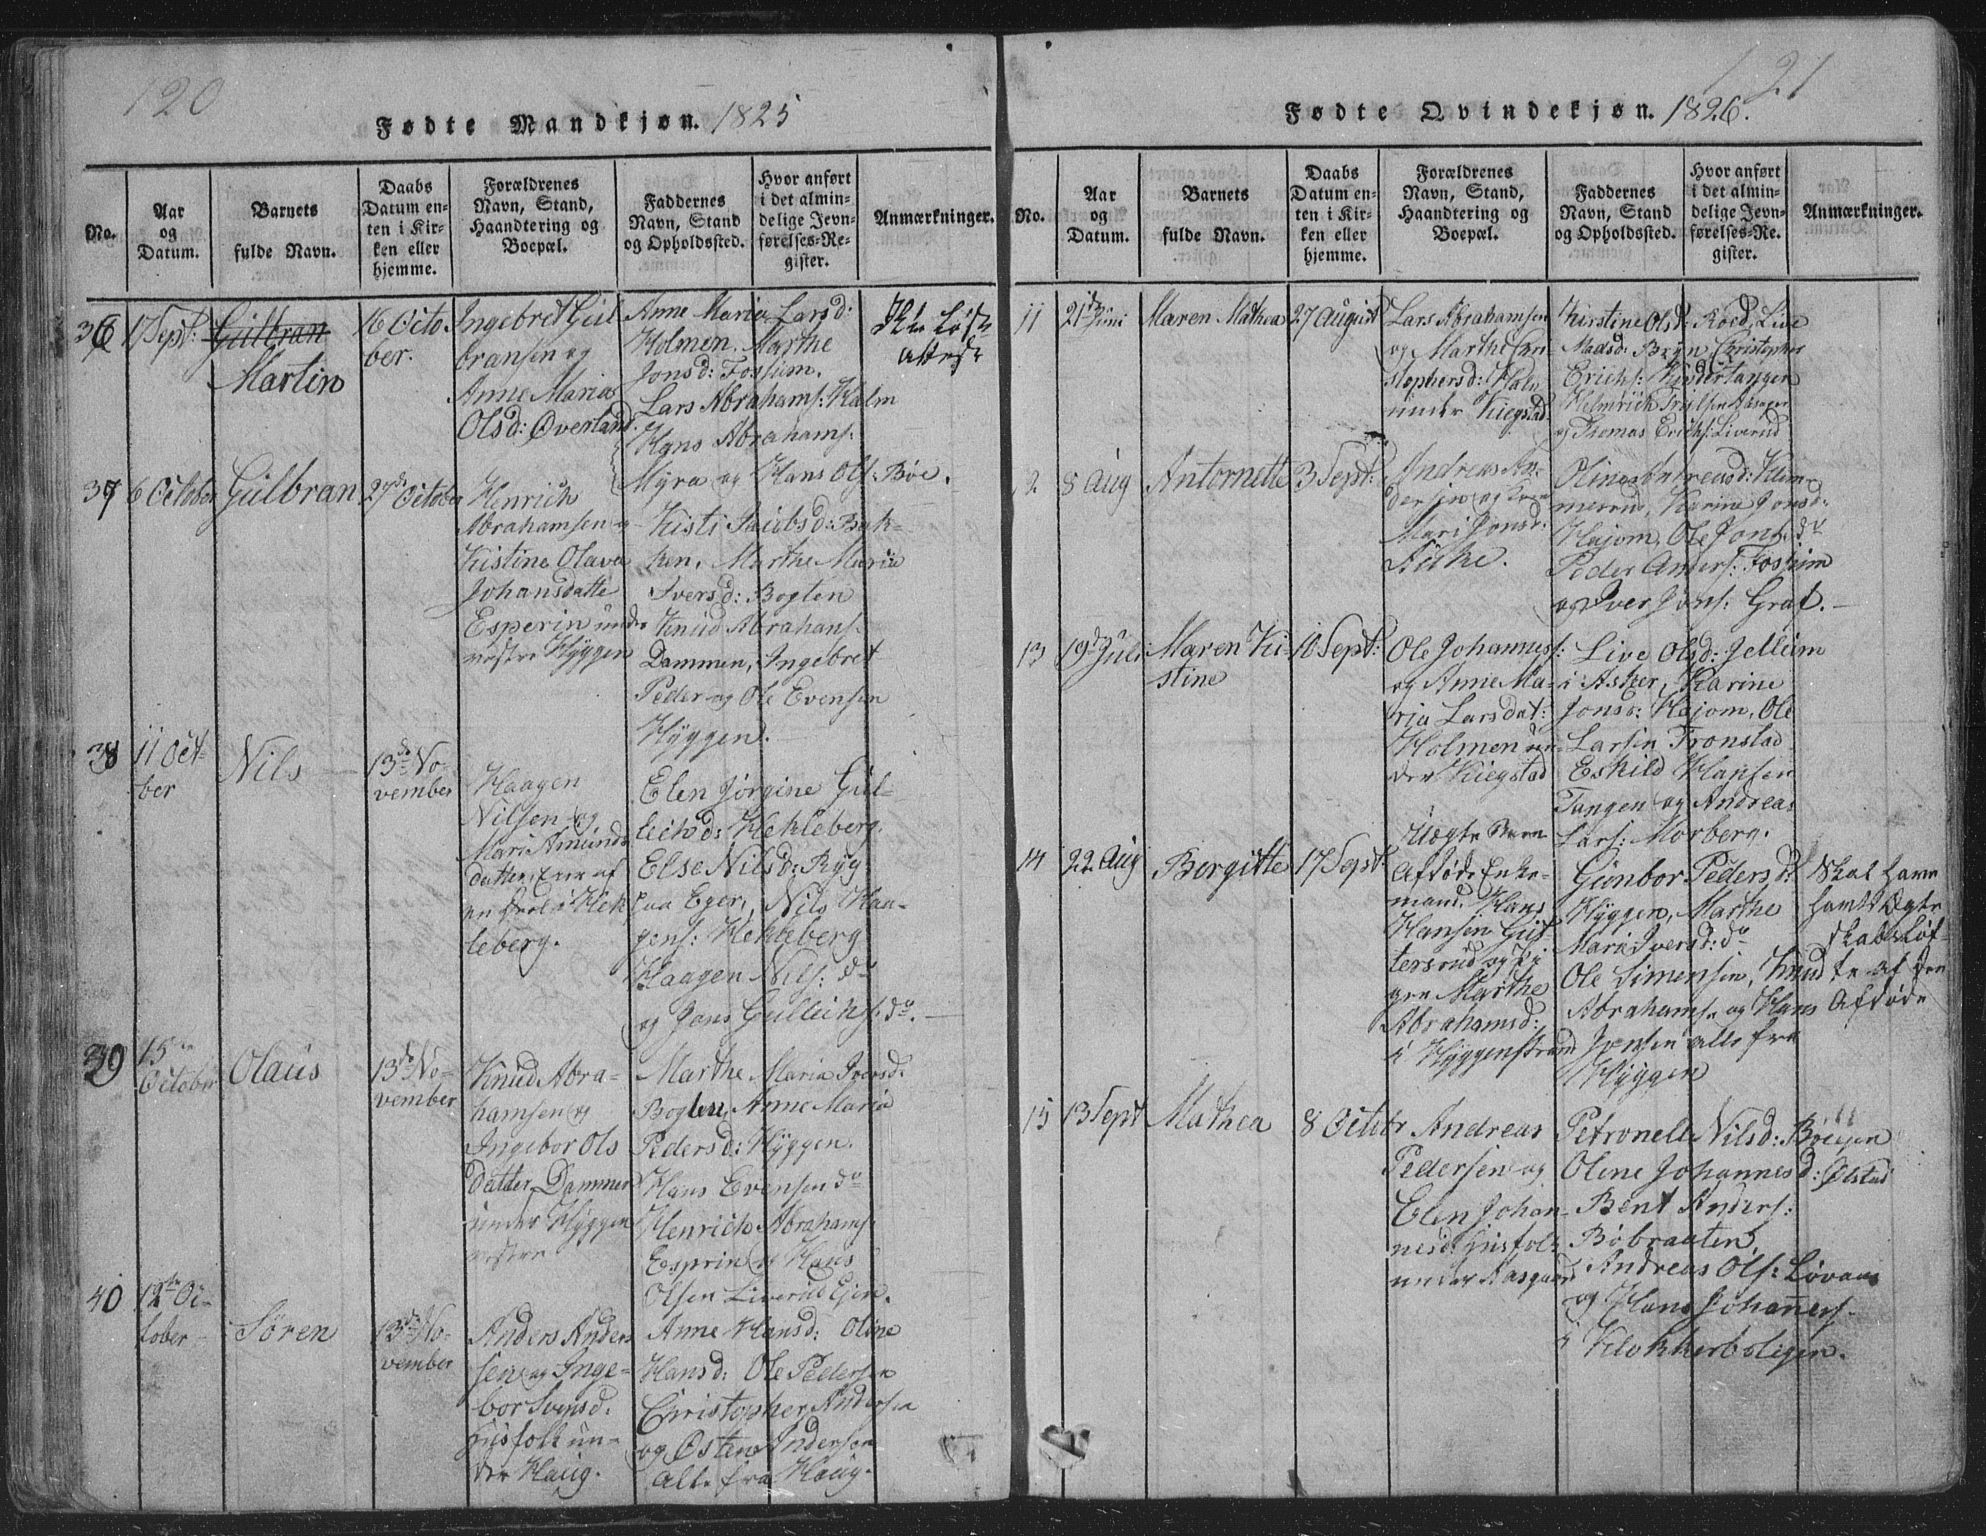 120
Fødte Mandkjøn. 1825
No.
Aar
og
Datum.
Barnets
fulde Navn.
Daabs
Datum en-
ten i Kir-
ken eller
hjemme.
Forældrenes
Navn, Stand,
Haandtering og
Boepæl.
Faddernes
Navn, Stand
og Opholdssted.
Hvor anført
i det almin-
delige Jevn-
førelses-Re-
gister.
Anmærkninger.
36
17 Sept:
Gulbran
Martin
16 Octo
ber.
Ingebret Gul
bransen og
Anne Maria
Olsd: Øverland
Anne Maria Larsd:
Holmen. Marthe
Jonsd: Fossum.
Lars Abrahams: Halm
Hans Abrahams:
Myra og Hans Ols: Bøe.
37
6 October
Gulbran
27de October
Henrich
Abrahamsen og
Kistine Olava
Johansdatte
Esperin under
vestre Hyggen
Kisti Jacobsd: Bak-
ken, Marthe Maria
Iversd: Bogten
Knud Abrahams:
Dammen, Ingebret
Peder og Ole Evensen
Hyggen.
38
11 Oct-
ber
Nils
13de No-
vember
Haagen
Nilsen og
Mari Amunds
datter, Eier af
en Deel i Hek
leberg.
Elen Jørgine Gul-
leichsd: Hekleberg.
Else Nilsd: Ryg
paa Eger, Nils Haa-
gens: Hekleberg
Haagen Nils: do
og Jons Gulleichs: do.
39
15de
October
Olaus
13de No-
vember
Knud Abra-
hamsen og
Ingebor Ols
Datter, Dammen
under Hyggen
vestre
Marthe Maria Iversd:
Bogten, Anne Maria
Pedersd: Hyggen.
Hans Evensen do
Henrich Abrahams:
Esprin og Hans
Olsen Liverud Ejer.
40
12te Oc-
tober
Søren
13de No-
vember
Anders Anders
sen og Inge-
bor Svensd.
Husfolk un-
der Haug.
Anne Hansd: Oline
Hansd: Ole Pedersen
Christopher Andersen
og Østen Andersen
alle fra Haug.
121
Fødte Qvindekjøn. 1826.
No.
Aar
og
Datum.
Barnets
fulde Navn.
Daabs
Datum en-
ten i Kir-
ken eller
hjemme.
Forældrenes
Navn, Stand,
Haandtering og
Boepæl.
Faddernes
Navn, Stand
og Opholdssted.
Hvor anført
i det almin-
delige Jevn-
førelses-Re-
gister.
Anmærkninger.
11
21de Juni
Maren Mathea
27 August
Lars Abrahamsen
og Marthe Chri-
stophersd: Halm
under Kiegstad
Kirstine Olsd: Roed, Live
Madsd: Bryn, Christopher
Erichs:
og Thomas Erichs: Liverud
2
8 Aug
Antornette
3 Sept:
Andreas An-
dersen og Karen
Mari Jonsd:
Oline Andreasd:
merud, Karine Jonsd:
Hajom, Ole Jons: do
Peder Anders: Fossum
og Iver Jons: Graf.
13
19de Juli
Maren Ki-
stine
10 Sept:
Ole Johanness:
og Anne Ma-
ria Larsdat:
Holmen un-
der Kiegstad
Live Olsd: Jellum
i Asker, Karine
Jonsd: Hajom, Ole
Larsen Tronstad
Eskild Hansen
Tangen og Andreas
Lars: Morberg.
14
22 Aug
Borgitte
17 Sept
Uægte Barn
Afdøde Enke-
mand Hans
Hansen Gut
tersrud og Pi
gen Marthe
Abrahamsd:
i Hyggenstrand
Gunbor Pedersd:
Hyggen, Marthe
Maria Iversd: do
Ole Simensen, Knud
Abrahams: og Hans
Jensen alle fra
Hyggen
Skal have
havt Ægte
skabs Løf-
te af den
Afdøde
15
13 Sept
Mathea
8 Octobr
Andreas
Pedersen og
Elen Johan-
nesd: Husfolk
under Aasgaard
Petronelle Nilsd: Bøe
Oline Johannesd: Ølstad
Bent Anders:
Bøbraaten,
Andreas Ols: Løvaas
og Hans Johannes:
i Klokkerboligen.